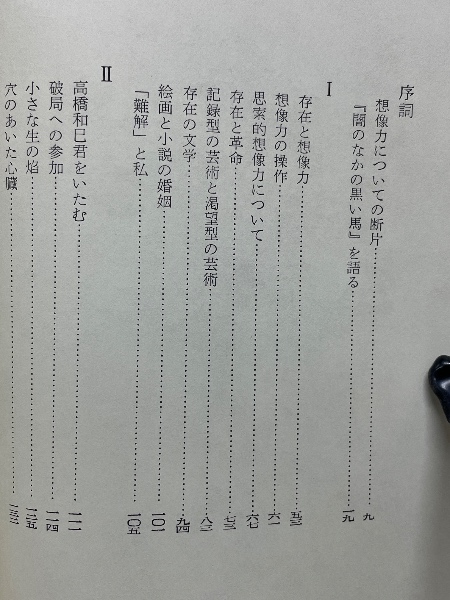 序詞
想像力についての断片……九
『闇のなかの黒い馬』を語る……一九
I
存在と想像力……五三
想像力の操作……六一
思索的想像力について……六七
存在と革命……七三
記録型の芸術と渇望型の芸術……八三
存在の文学……九四
絵画と小説の婚姻……一〇一
「難解」と私……一〇五
II
高橋和巳君をいたむ……一一一
破局への参加……一一四
小さな生の焰……一二五
穴のあいた心臓……一三三